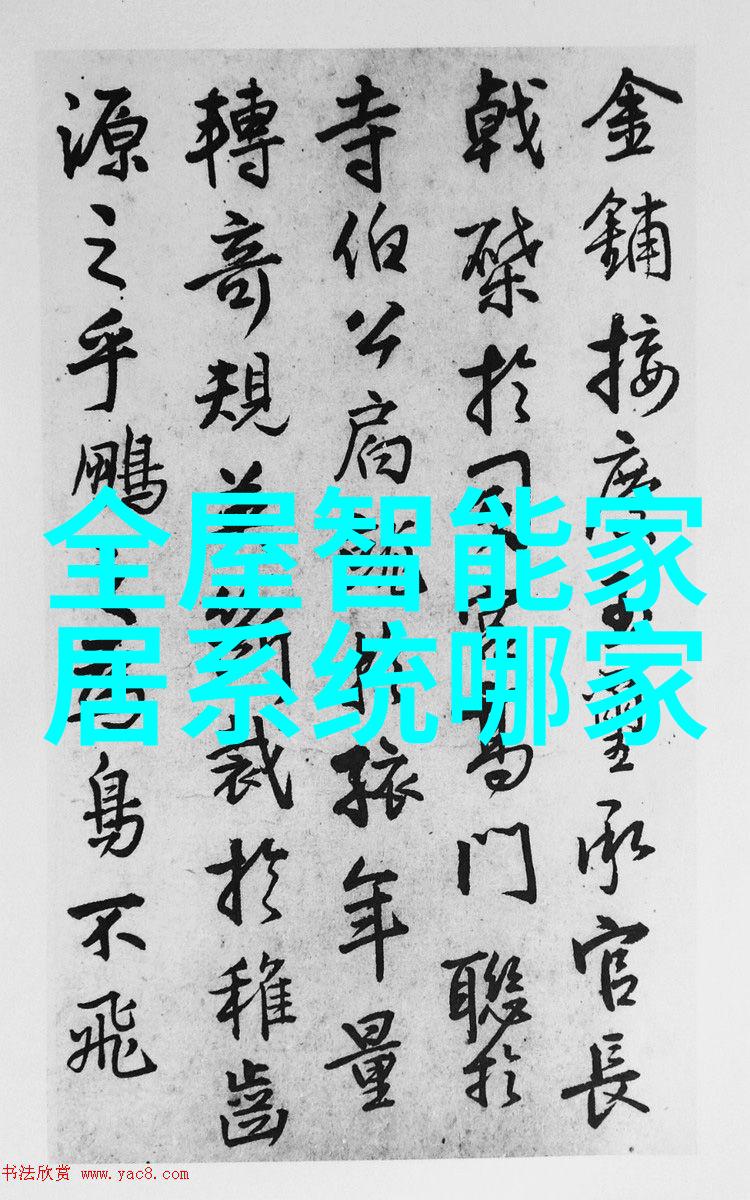 金鋪接璽承官長
戟於門聯於
寺伯公年量
轉奇規裁於稚齒
源之乎鵬鳥不飛
全屋智能家
居系统哪家
书法欣赏 www.yac8.com